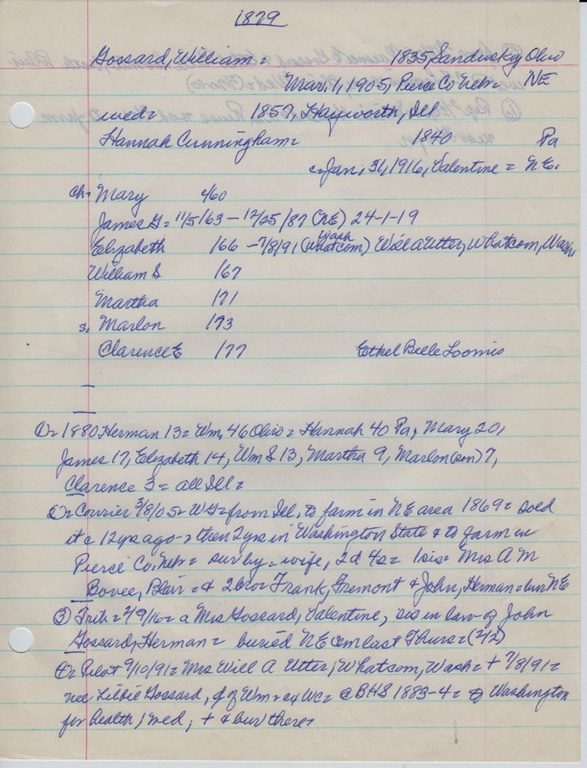 1879
Gossard, William = 1835, Sandusky Ohio
Mar. 1, 1905, Pierce Co Neb = NE
wed = 1857, Hayworth, Ill
Hannah Cunningham = 1840 Pa
= Jan, 31, 1916, Valentine = NE.
ch = Mary '60
James G = 11/5/63 - 12/25/87 (NE) 24-1-19
Elizabeth '66 - 7/8/91 (Wash Whatcom) Will A Utter, Whatcom, Wash
William S '67
Martha '71
s, Marlon '73
Clarence E '77 Ethel Belle Loomis
① = 1880 Herman 13 = Wm, 46 Ohio = Hannah 40 Pa, Mary 20,
James 17, Elizabeth 14, Wm S 13, Martha 9, Marlon (son) 7,
Clarence 3 = all Ill =
② = Courier 3/8/05 = WG = from Ill, to farm in NE area 1869 = sold
it = 12 yrs ago = then 2 yrs in Washington State & to farm in
Pierce Co, Neb = sur by = wife, 2d 4s = 1 sis = Mrs A M
Bovee, Blair = & 2 bro = Frank, Fremont & John, Herman = bur NE
③ Trib = 2/9/16 = a Mrs Gossard, Valentine, sis in law of John
Gossard, Herman = buried NE cem last Thurs = (2/2)
Pilot 9/10/91 = Mrs Will A Utter, Whatcom, Wash = + 7/8/91 =
nee Libbie Gossard, of Wm = ex WC = @ BHS 1883-4 = to Washington
for health, wed, + & bur there =